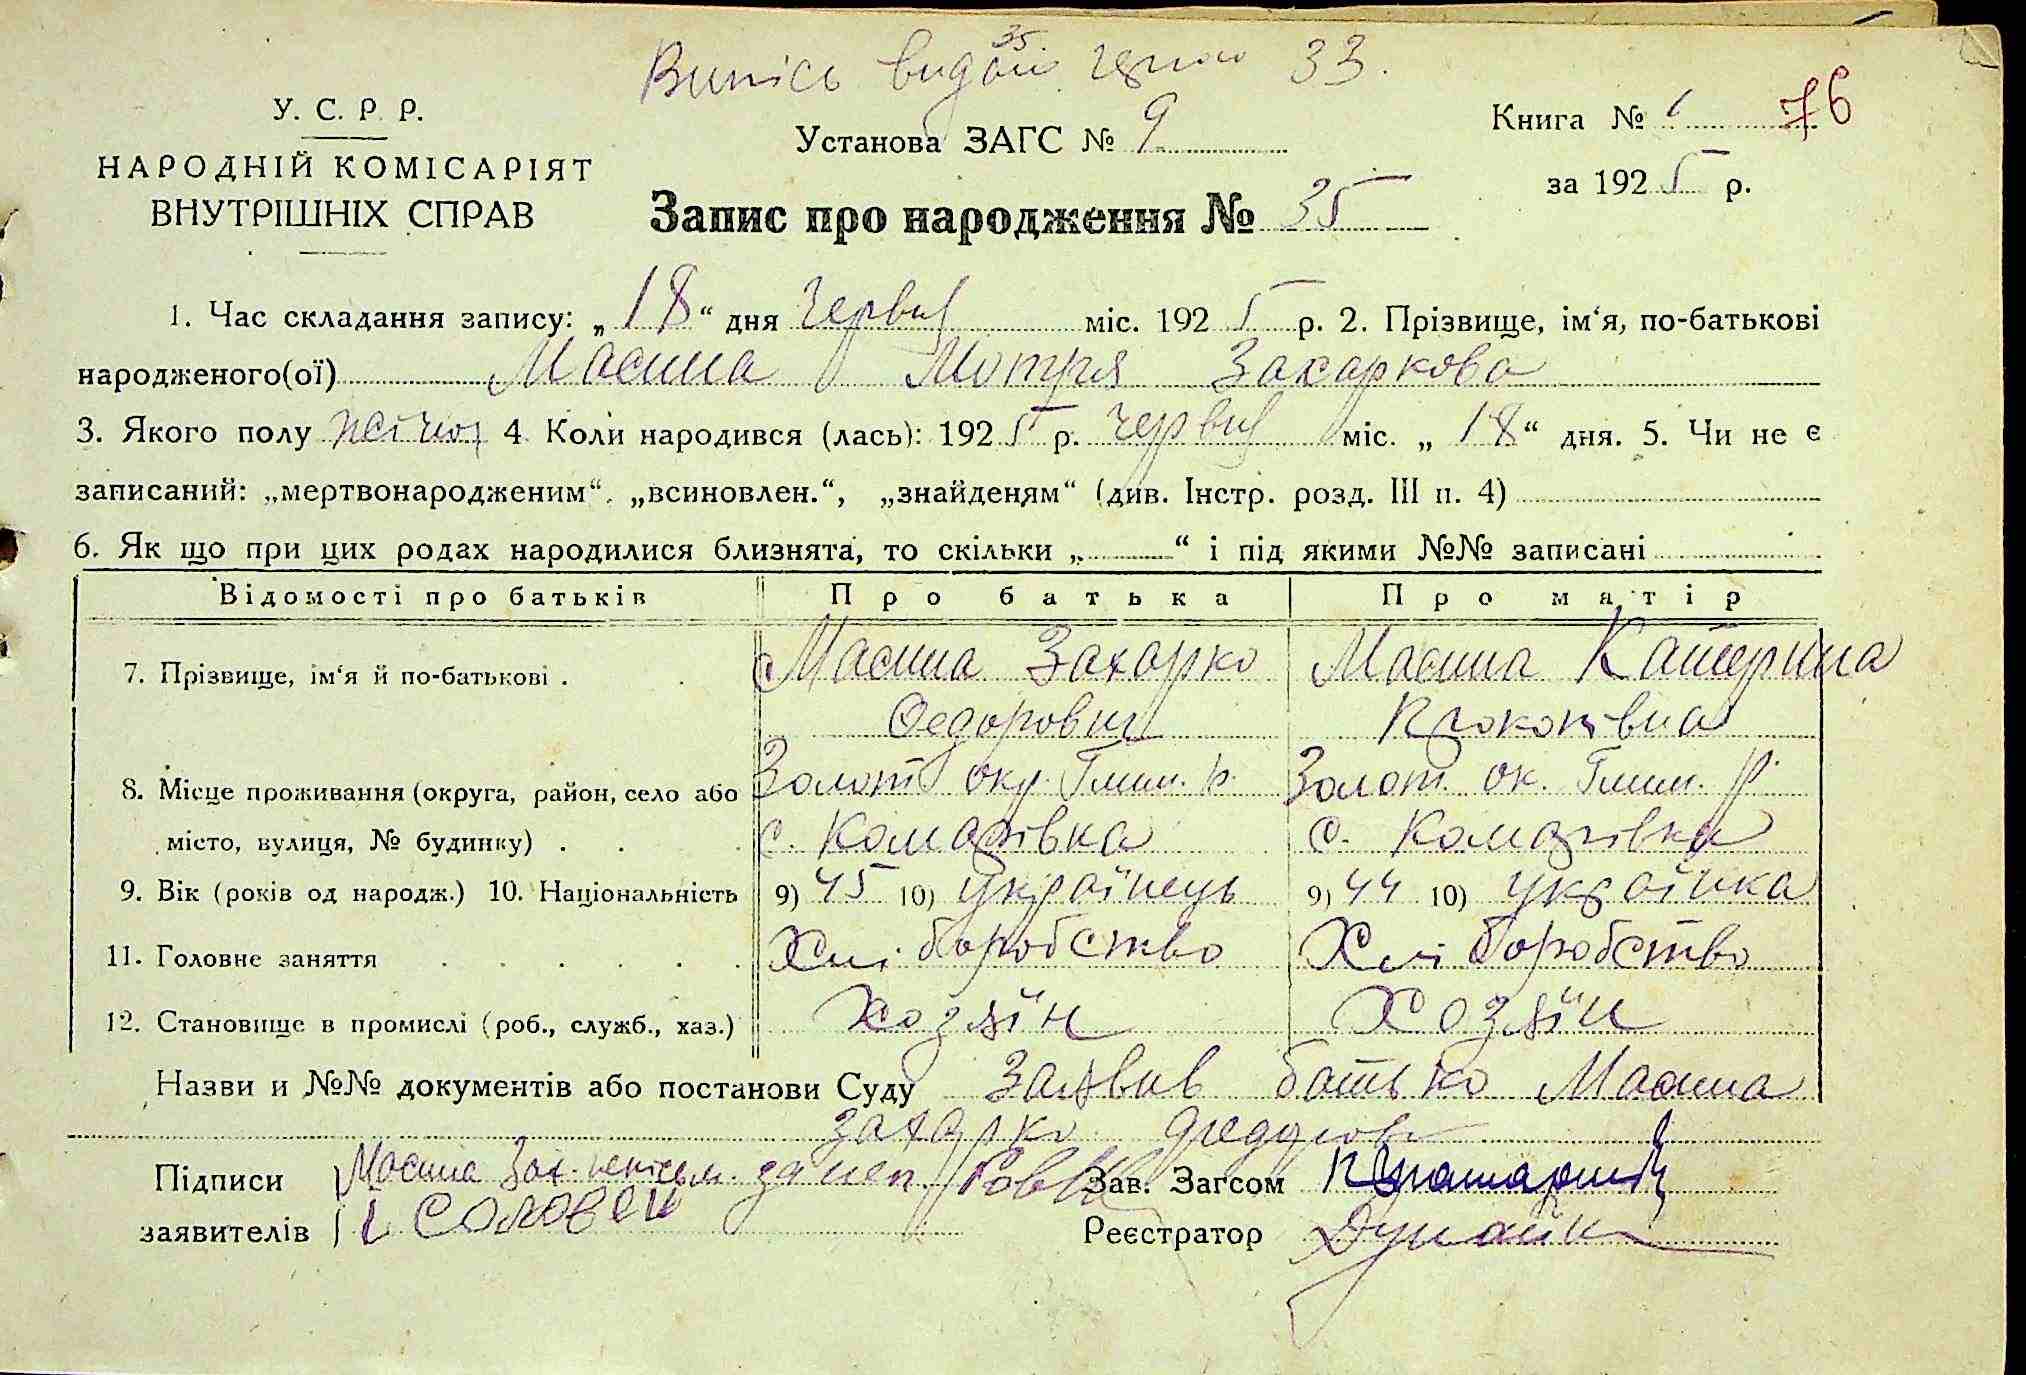 Випісь видан 35. 33.
У. С. Р. Р.
НАРОДНІЙ КОМІСАРІЯТ
ВНУТРІШНІХ СПРАВ
Установа ЗАГС № 9
Книга № 1 76
за 1925 р.
Запис про народження № 35
1. Час складання запису: „18“ дня червня міс. 1925 р. 2. Прізвище, ім‘я, по-батькові
народженого(ої) Масша Мотря Захаркова
3. Якого полу жіноч 4 Коли народився (лась): 1925 р. червня міс. „18“ дня. 5. Чи не є
записаний: „мертвонародженим“, „всиновлен.“, „знайденям“ (див. Інстр. розд. III п. 4)
6. Як що при цих родах народилися близнята, то скільки „ “ і під якими №№ записані
Відомості про батьків Про батька Про матір
7. Прізвище, ім‘я й по-батькові . Масша Захарко Масша Катерина
Федорович Прокопівна
8. Місце проживання (округа, район, село або Золот окр. Глим. р. Золот. ок. Глим. р.
місто, вулиця, № будинку) . с. Комарівка с. Комарівка
9. Вік (років од народж.) 10. Національність 9) 45 10) українець 9) 44 10) українка
11. Головне заняття Хліборобство Хліборобство
12. Становище в промислі (роб., служб., хаз.) Хозяїн Хозяїн
Назви и №№ документів або постанови Суду Заявив батько Масша
Захарко Федорови
Підписи Масша Зах. непісьм. за неп Зав. Загсом
заявителів і Соловей Реєстратор